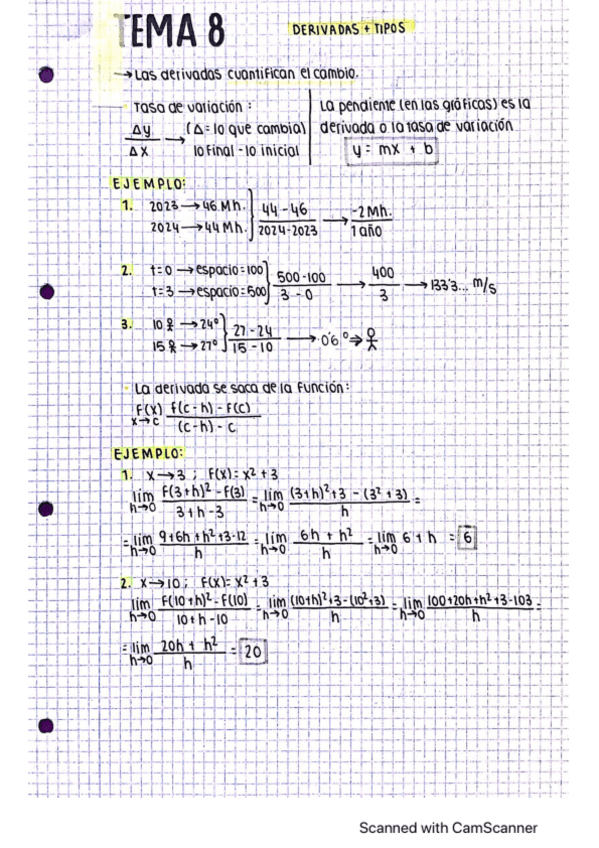 TEMA 8
DERIVADAS + TIPOS
→ Las derivadas cuantifican el cambio.
- Tasa de variación :
Δy / Δx → (Δ = lo que cambia)
lo final - lo inicial
La pendiente (en las gráficas) es la
derivada o la tasa de variación
y = mx + b
EJEMPLO:
1. 2023 → 46 Mh.
2024 → 44 Mh. } 44 - 46 / 2024 - 2023 → -2 Mh. / 1 año
2. t=0 → espacio = 100
t=3 → espacio = 500 } 500 - 100 / 3 - 0 → 400 / 3 → 133'3... m/s
3. 10 → 24°
15 → 27° } 27 - 24 / 15 - 10 → 0'6° ⇒
- La derivada se saca de la función:
F(x) x→c f(c-h) - F(c) / (c-h) - c
EJEMPLO:
1. x→3 ; F(x) = x² + 3
lím h→0 F(3+h)² - F(3) / 3+h-3 = lím h→0 (3+h)² + 3 - (3² + 3) / h =
= lím h→0 9+6h+h²+3-12 / h = lím h→0 6h + h² / h = lím h→0 6 + h = 6
2. x→10 ; F(x) = x² + 3
lím h→0 F(10+h)² - F(10) / 10+h-10 = lím h→0 (10+h)² + 3 - (10² + 3) / h = lím h→0 100+20h+h²+3-103 / h =
= lím h→0 20h + h² / h = 20
Scanned with CamScanner